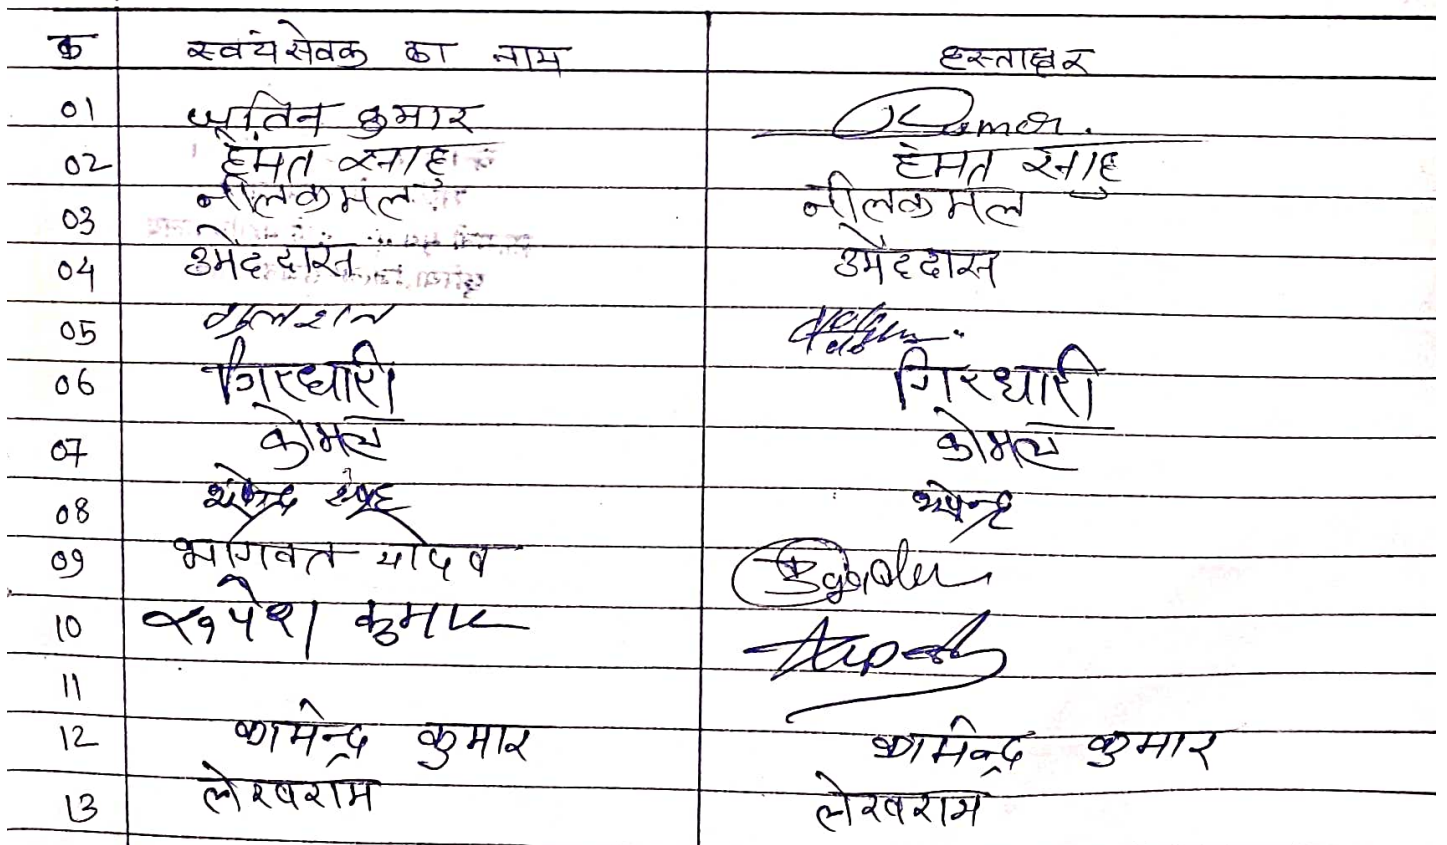 क्र स्वयंसेवक का नाम हस्ताक्षर
01 कुमार Kumar.
02 हेमंत साहु हेमंत साहु
03 नीलकमल नीलकमल
04 उमेददास उमेददास
05 गुलशन
06 गिरधारी गिरधारी
07 कोमल कोमल
08
09 भागवत यादव
10 रुपेश कुमार
11
12 कामेन्द्र कुमार कामेन्द्र कुमार
13 लेखराम लेखराम